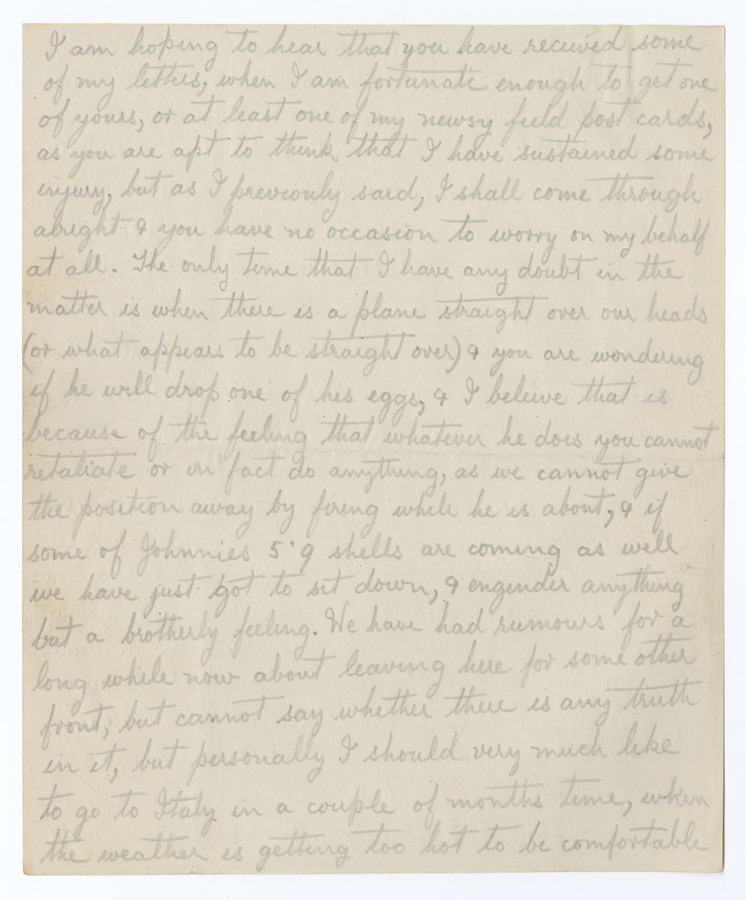 I am hoping to hear that you have received some
of my letters, when I am fortunate enough to get one
of yours, or at least one of my newsy field post cards,
as you are apt to think that I have sustained some
injury, but as I previously said, I shall come through
alright & you have no occasion to worry on my behalf
at all. The only time that I have any doubt in the
matter is when there is a plane straight over our heads
(or what appears to be straight over) & you are wondering
if he will drop one of his eggs, & I beleive that is
because of the feeling that whatever he does you cannot
retaliate or in fact do anything, as we cannot give
the position away by firing while he is about, & if
some of Johnnies 5·9 shells are coming as well
we have just got to sit down, & engender anything
but a brotherly feeling. We have had rumours for a
long while now about leaving here for some other
front, but cannot say whether there is any truth
in it, but personally I should very much like
to go to Italy in a couple of months time, when
the weather is getting too hot to be comfortable